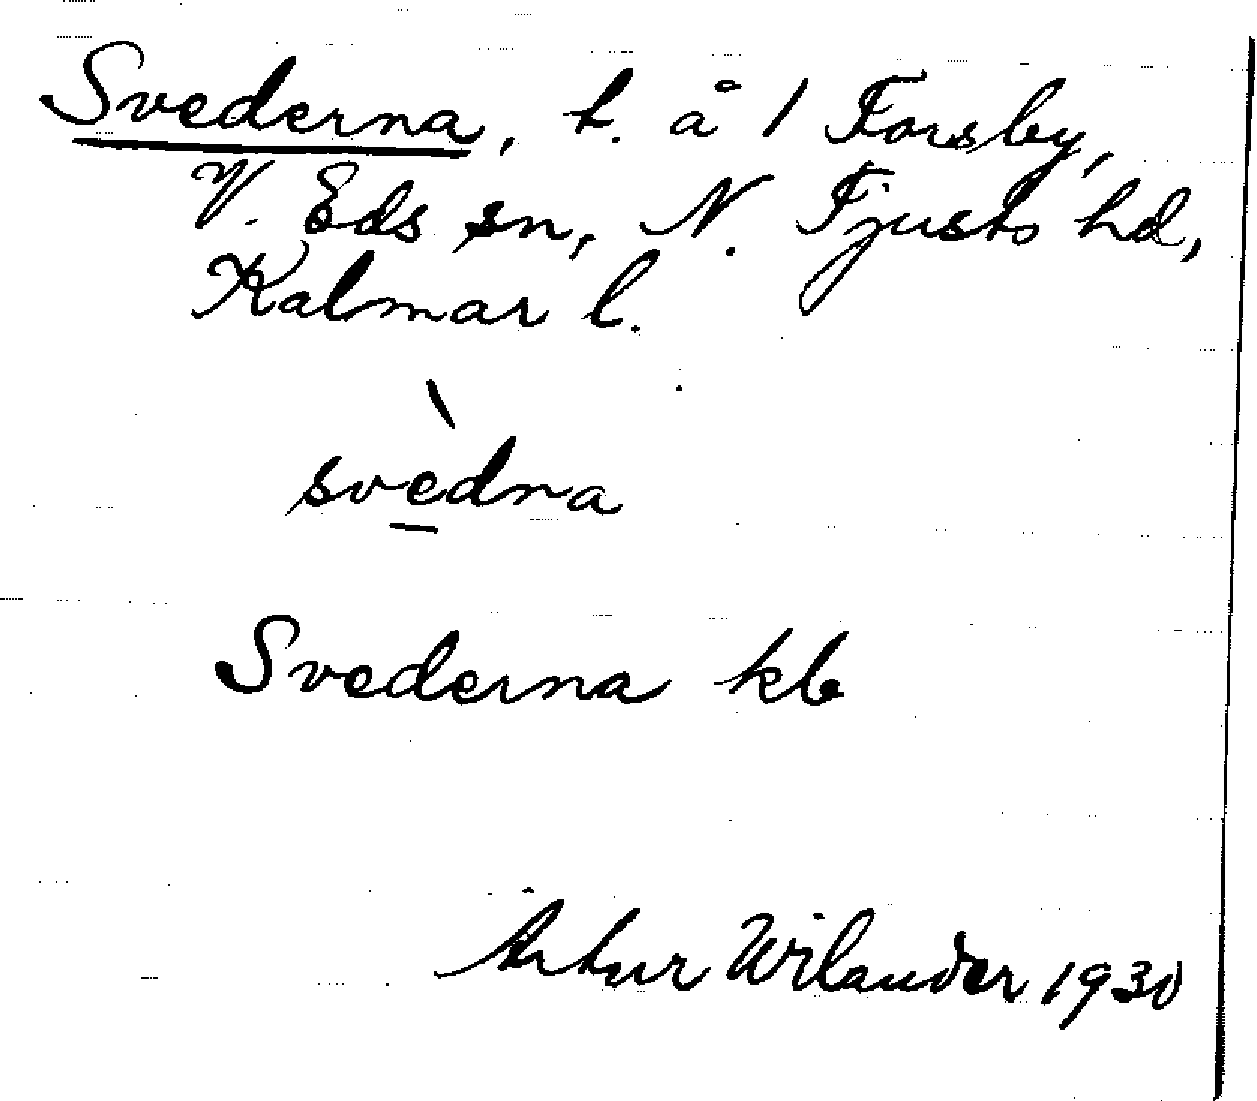 Svederna, t. å 1 Forsby,
V. Eds sn, N. Tjusts hd,
Kalmar l.
svèdna
Svederna kb
Artur Wilander 1930